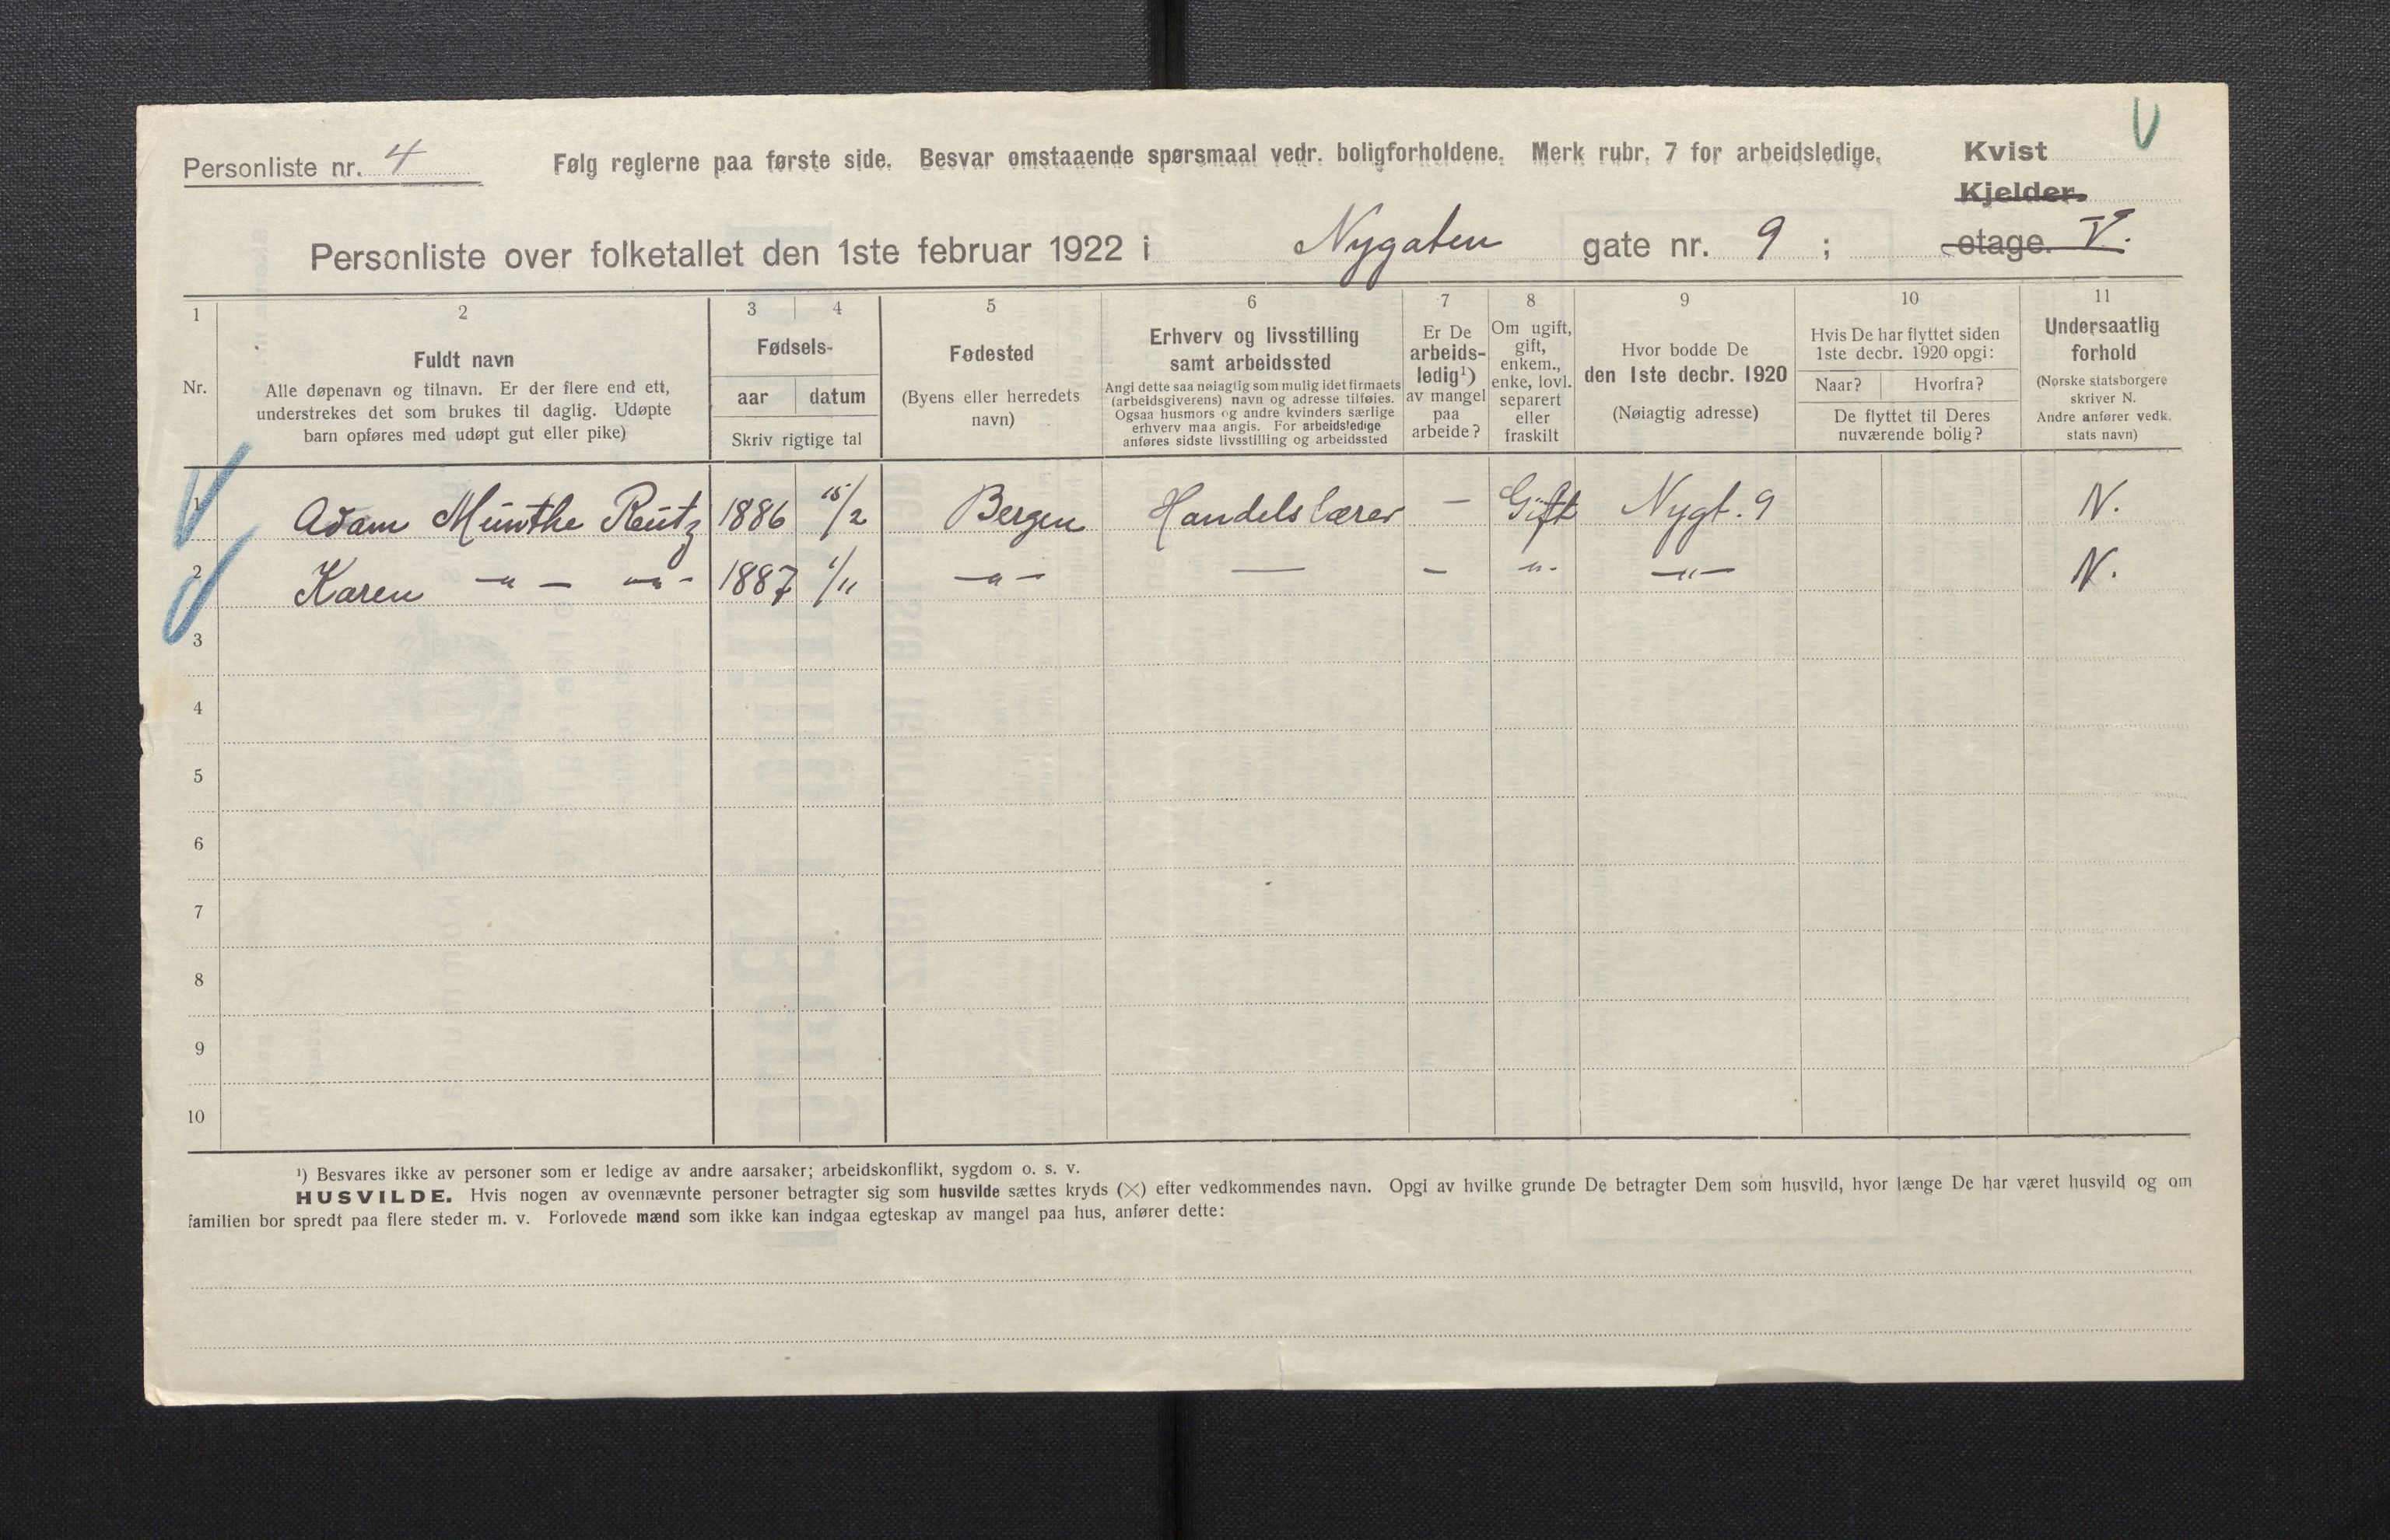 Personliste nr. 4
Følg reglerne paa første side. Besvar omstaaende spørsmaal vedr. boligforholdene. Merk rubr. 7 for arbeidsledige.
Kvist
Kjelder.
Personliste over folketallet den 1ste februar 1922 i Nygaten gate nr. 9 ; etage. V.
1 2 3 4 5 6 7 8 9 10 11
Nr.
Fuldt navn
Alle døpenavn og tilnavn. Er der flere end ett,
understrekes det som brukes til daglig. Udøpte
barn opføres med udøpt gut eller pike)
Fødsels-
aar datum
Skriv rigtige tal
Fødested
(Byens eller herredets
navn)
Erhverv og livsstilling
samt arbeidssted
Angi dette saa nøiagtig som mulig idet firmaets
(arbeidsgiverens) navn og adresse tilføies.
Ogsaa husmors og andre kvinders særlige
erhverv maa angis. For arbeidsledige
anføres sidste livsstilling og arbeidssted
Er De
arbeids-
ledig¹)
av mangel
paa
arbeide?
Om ugift,
gift,
enkem.,
enke, lovl.
separert
eller
fraskilt
Hvor bodde De
den 1ste decbr. 1920
(Nøiagtig adresse)
Hvis De har flyttet siden
1ste decbr. 1920 opgi:
Naar? Hvorfra?
De flyttet til Deres
nuværende bolig?
Undersaatlig
forhold
(Norske statsborgere
skriver N.
Andre anfører vedk.
stats navn)
1 Adam Munthe Reutz 1886 15/2 Bergen Handelslærer — Gift Nygt. 9 N.
2 Karen —"— —"— 1887 1/11 —"— — — —"— —"— N.
3
4
5
6
7
8
9
10
¹) Besvares ikke av personer som er ledige av andre aarsaker; arbeidskonflikt, sygdom o. s. v.
HUSVILDE. Hvis nogen av ovennævnte personer betragter sig som husvilde sættes kryds (×) efter vedkommendes navn. Opgi av hvilke grunde De betragter Dem som husvild, hvor længe De har været husvild og om
familien bor spredt paa flere steder m. v. Forlovede mænd som ikke kan indgaa egteskap av mangel paa hus, anfører dette: